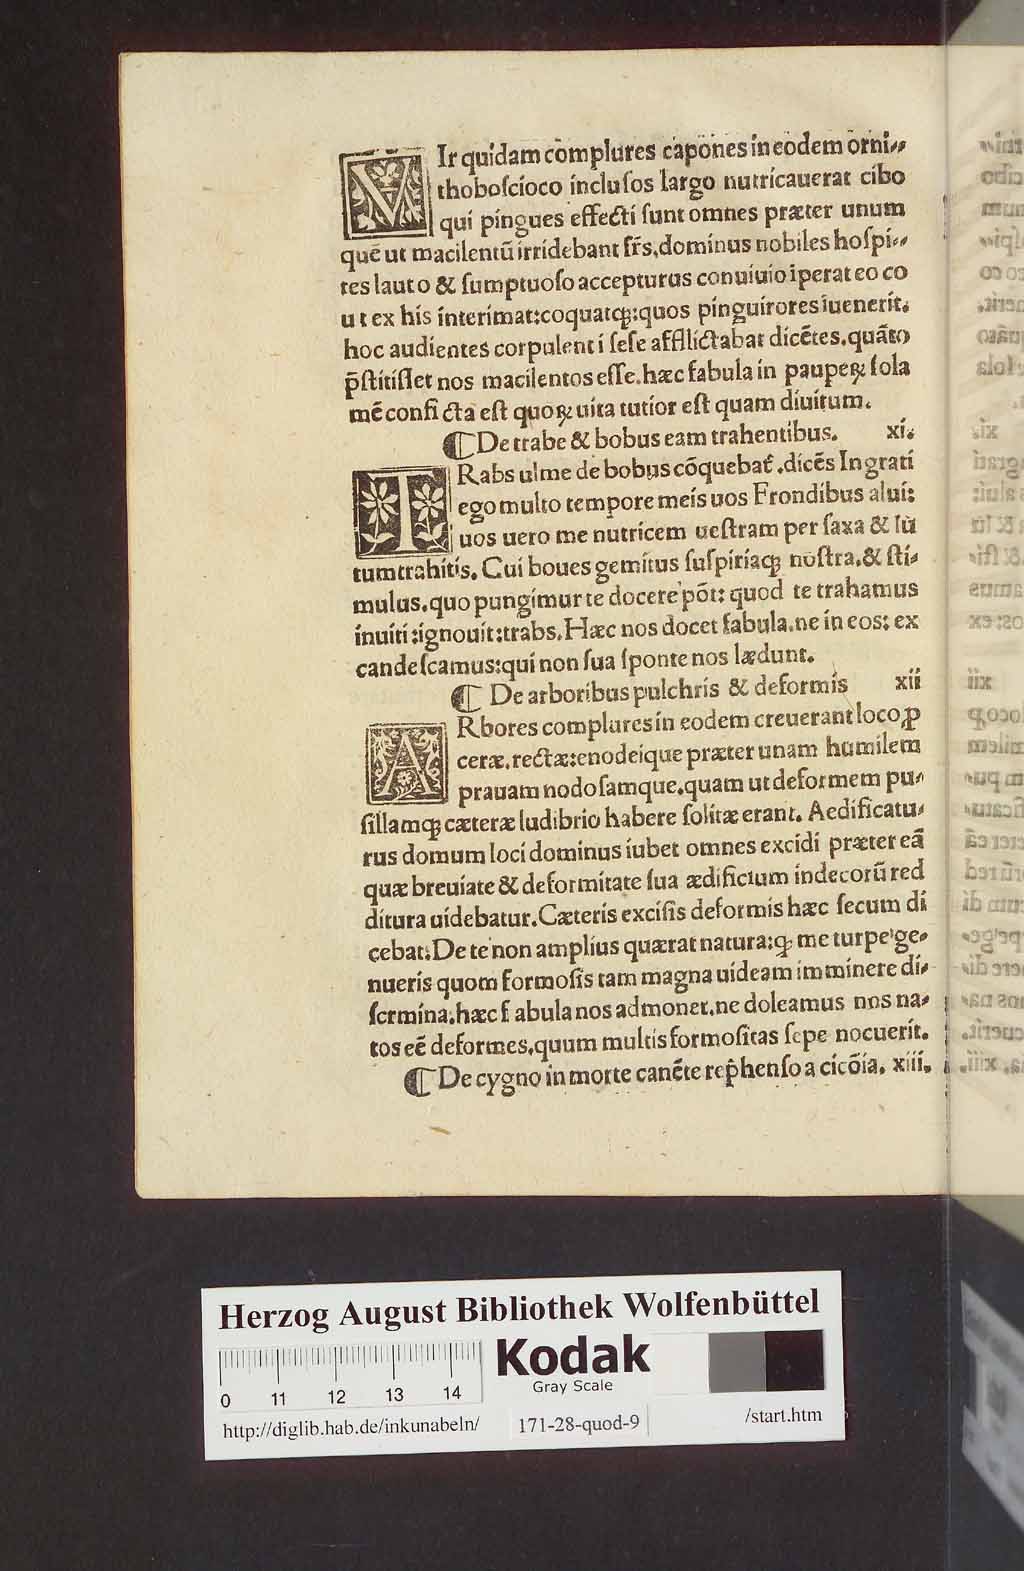 VIr quidam complures capones in eodem orni⸗
thoboſcioco incluſos largo nutricauerat cibo
qui pingues effecti ſunt omnes præter unum
quē ut macilentū irridebant fr̄s, dominus nobiles hoſpi⸗
tes lauto & ſumptuoſo accepturus conuiuio iperat eo co
ut ex his interimat: coquatqꝫ: quos pinguirores iuenerit.
hoc audientes corpulenti ſeſe afflictabāt dicētes. quāto
p̄ſtitiſſet nos macilentos eſſe. hæc fabula in pauperꝝ ſola
mē conficta eſt quoꝝ uita tutior eſt quam diuitum.
¶ De trabe & bobus eam trahentibus. xi.
TRabs ulme de bobus cōquebat̄. dicēs Ingrati
ego multo tempore meis uos Frondibus alui:
uos uero me nutricem ueſtram per ſaxa & lū
tum trahitis. Cui boues gemitus ſuſpiriaqꝫ noſtra. & ſti⸗
mulus. quo pungimur te docere pōt: quod te trahamus
inuiti: ignouit: trabs. Hæc nos docet fabula. ne in eos: ex
candeſcamus: qui non ſua ſponte nos lædunt.
¶ De arboribus pulchris & deformis xii
ARbores complures in eodem creuerant loco ꝓ
ceræ. rectæ: enodeique præter unam humilem
prauam nodoſamque. quam ut deformem pu⸗
ſillamqꝫ cæteræ ludibrio habere ſolitæ erant. Aedificatu⸗
rus domum loci dominus iubet omnes excidi præter eā
quæ breuiate & deformitate ſua ædificium indecorū red
ditura uidebatur. Cæteris exciſis deformis hæc ſecum di
cebat: De te non amplius quærar natura: qꝫ me turpe ge⸗
nueris quom formoſis tam magna uideam imminere di⸗
ſcrmina: hæc fabula nos admonet. ne doleamus nos na⸗
tos eē deformes, quum multis formoſitas ſepe nocuerit.
¶ De cygno in morte canēte rep̄henſo a cicōia. xiii.
Herzog August Bibliothek Wolfenbüttel
Kodak
Gray Scale
0 11 12 13 14
http://diglib.hab.de/inkunabeln/ 171-28-quod-9 /start.htm